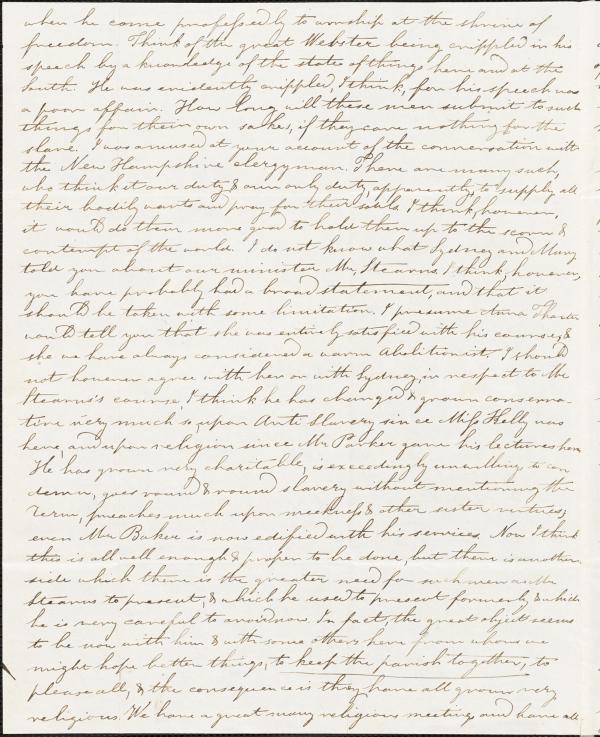 when he come professedly to worship at the shrine of
freedom. Think of the great Webster being crippled in his
speech by a knowledge of the state of things here and at the
South. He was evidently crippled, I think, for his speech was
a poor affair. How long will these men submit to such
things for their own sakes, if they care nothing for the
slave. I was amused at your account of the conversation with
the New Hampshire clergyman. There are many such,
who think it our duty & our only duty apparently, to supply all
their bodily wants and pray for their souls. I think, however,
it would do them more good to hold them up to the scorn &
contempt of the world. I do not know what Sydney and Mary
told you about our minister Mr. Stearns, I think, however,
you have probably had a broad statement, and that it
should be taken with some limitation. I presume Anna
would tell you that she was entirely satisfied with his course, &
she we have always considered a warm Abolitionist. I should
not however agree with her or with Sydney, in respect to Mr
Stearns's course, I think he has changed & grown conserva-
tive very much so upon Anti Slavery since Miss Kelly was
here, and upon religion since Mr. Parker gave his lectures here
He has grown very charitable, is exceedingly unwilling to con
demn, goes round & round slavery without mentioning the
term, preaches much upon meekness & other sister virtues;
even Mr. Baker is now edified with his services. Now I think
this is all well enough & proper to be done, but there is another
side which there is the greater need for such men as Mr
Stearns to present, & which he used to present formerly, & which
he is very careful to avoid now. In fact, the great object seems
to be now with him & with some others here from whom we
might hope better things, to keep the parish together, to
please all, & the consequence is they have all grown very
religious. We have a great many religious meetings and have all